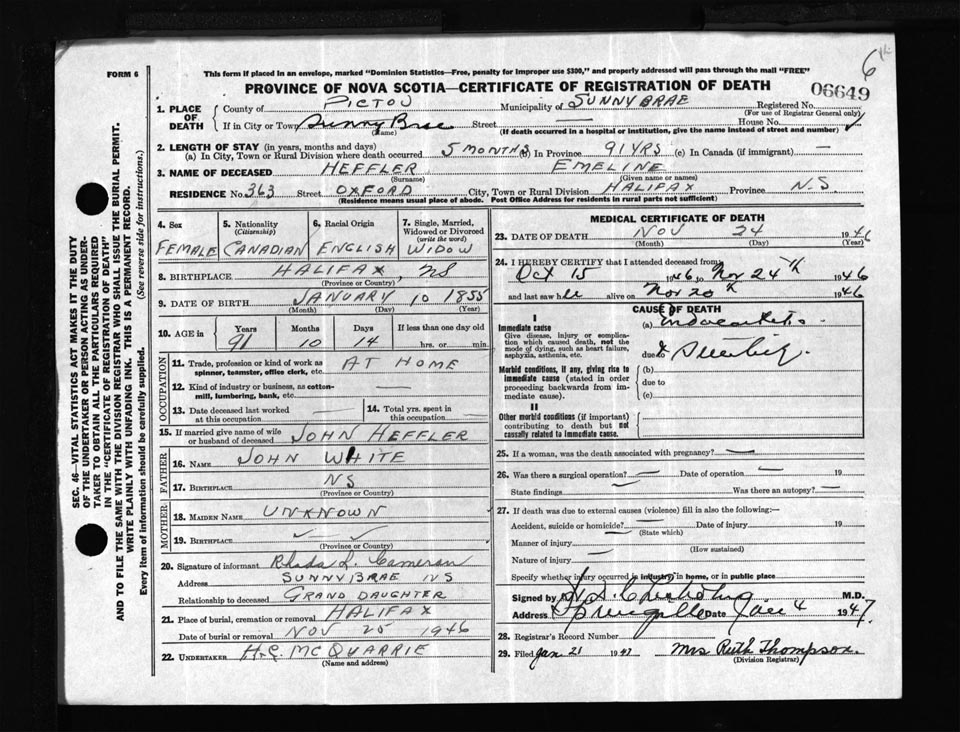 6th
FORM 6
This form if placed in an envelope, marked "Dominion Statistics—Free, penalty for improper use $300," and properly addressed will pass through the mail "FREE"
PROVINCE OF NOVA SCOTIA—CERTIFICATE OF REGISTRATION OF DEATH
06649
1. PLACE OF DEATH
County of PICTOU Municipality of SUNNYBRAE Registered No.
(For use of Registrar General only)
If in City or Town Sunny Brae Street — House No.
(Name) (If death occurred in a hospital or institution, give the name instead of street and number)
2. LENGTH OF STAY (in years, months and days)
(a) In City, Town or Rural Division where death occurred 5 MONTHS (b) In Province 91 YRS (c) In Canada (if immigrant) —
3. NAME OF DECEASED HEFFLER EMELINE
(Surname) (Given name or names)
RESIDENCE No. 363 Street OXFORD City, Town or Rural Division HALIFAX Province N.S
(Residence means usual place of abode. Post Office Address for residents in rural parts not sufficient)
4. Sex
FEMALE
5. Nationality
(Citizenship)
CANADIAN
6. Racial Origin
ENGLISH
7. Single, Married, Widowed or Divorced
(write the word)
WIDOW
8. BIRTHPLACE HALIFAX, NS
(Province or Country)
9. DATE OF BIRTH JANUARY 10 1855
(Month) (Day) (Year)
10. AGE in
Years Months Days If less than one day old
91 10 14 hrs. or min.
OCCUPATION
11. Trade, profession or kind of work as AT HOME
spinner, teamster, office clerk, etc.
12. Kind of industry or business, as cotton-
mill, lumbering, bank, etc. —
13. Date deceased last worked
at this occupation —
14. Total yrs. spent in
this occupation —
15. If married give name of wife
or husband of deceased JOHN HEFFLER
FATHER
16. NAME JOHN WHITE
17. BIRTHPLACE NS
(Province or Country)
MOTHER
18. MAIDEN NAME UNKNOWN
19. BIRTHPLACE
(Province or Country)
20. Signature of informant Rhoda L. Cameron
Address SUNNYBRAE NS
Relationship to deceased GRAND DAUGHTER
21. Place of burial, cremation or removal HALIFAX
Date of burial or removal NOV 25 1946
22. UNDERTAKER MCQUARRIE
(Name and address)
MEDICAL CERTIFICATE OF DEATH
23. DATE OF DEATH NOV 24 1946
(Month) (Day) (Year)
24. I HEREBY CERTIFY that I attended deceased from
Oct 15 1946 to Nov 24th 1946
and last saw h alive on Nov 20th 1946
CAUSE OF DEATH
I
Immediate cause
Give disease, injury or complication which caused death, not the mode of dying, such as heart failure, asphyxia, asthenia, etc.
(a)
due to
Morbid conditions, if any, giving rise to immediate cause (stated in order proceeding backwards from immediate cause).
(b)
due to
(c)
II
Other morbid conditions (if important) contributing to death but not causally related to immediate cause.
25. If a woman, was the death associated with pregnancy? —
26. Was there a surgical operation? — Date of operation — 19
State findings Was there an autopsy? —
27. If death was due to external causes (violence) fill in also the following:—
Accident, suicide or homicide? — Date of injury 19
(State which)
Manner of injury
(How sustained)
Nature of injury —
Specify whether injury occurred in industry, in home, or in public place
Signed by M.D.
Address Date 4 1947.
28. Registrar's Record Number
29. Filed Jan 21 1947 Mrs Ruth Thompson.
(Division Registrar)
SEC. 46—VITAL STATISTICS ACT MAKES IT THE DUTY
OF THE UNDERTAKER OR PERSON ACTING AS UNDER-
TAKER TO OBTAIN ALL THE PARTICULARS REQUIRED
IN THE "CERTIFICATE OF REGISTRATION OF DEATH"
AND TO FILE THE SAME WITH THE DIVISION REGISTRAR WHO SHALL ISSUE THE BURIAL PERMIT.
WRITE PLAINLY WITH UNFADING INK. THIS IS A PERMANENT RECORD.
Every item of information should be carefully supplied. (See reverse side for instructions.)